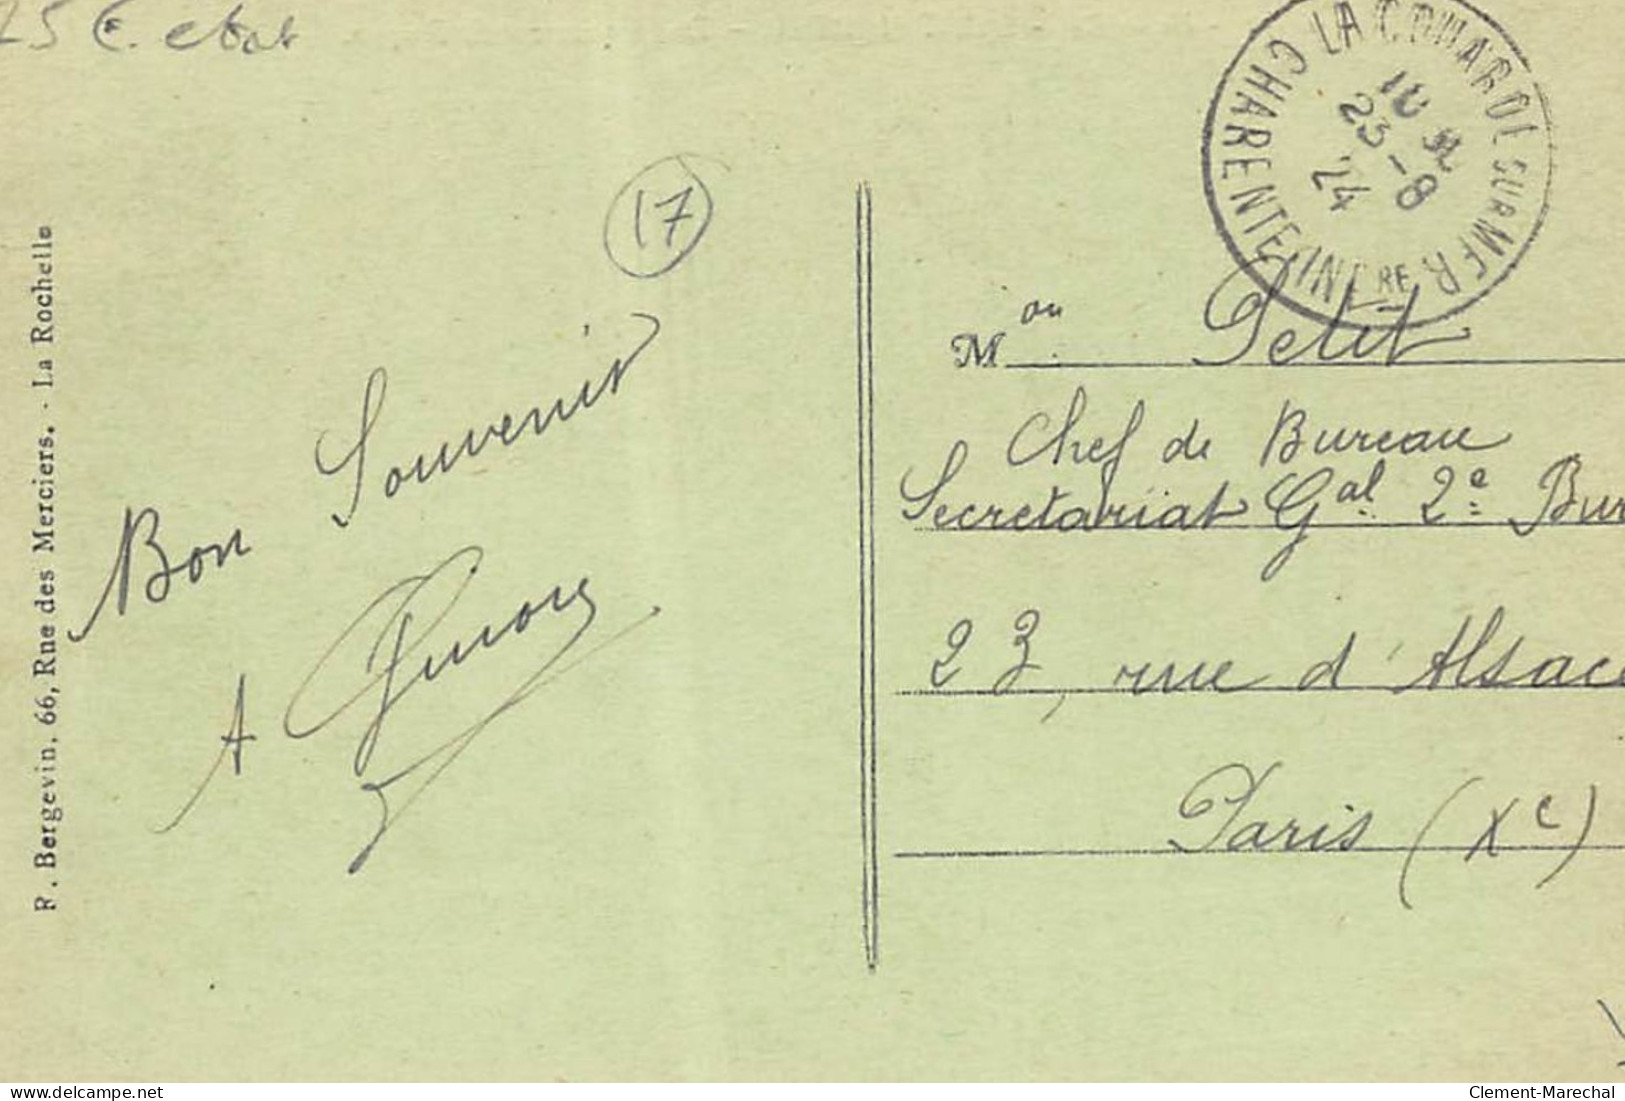 25 € état
17
Bon Souvenir
A
R. Bergevin, 66, Rue des Merciers. - La Rochelle
LA COUARDE SUR MER
CHARENTE INFRE
23-8
24
Mon Petit
Chef de Bureau
Secretariat Gal 2e Bur
23, rue d'Alsace
Paris (Xe)
delcampe.net
Clement-Marechal